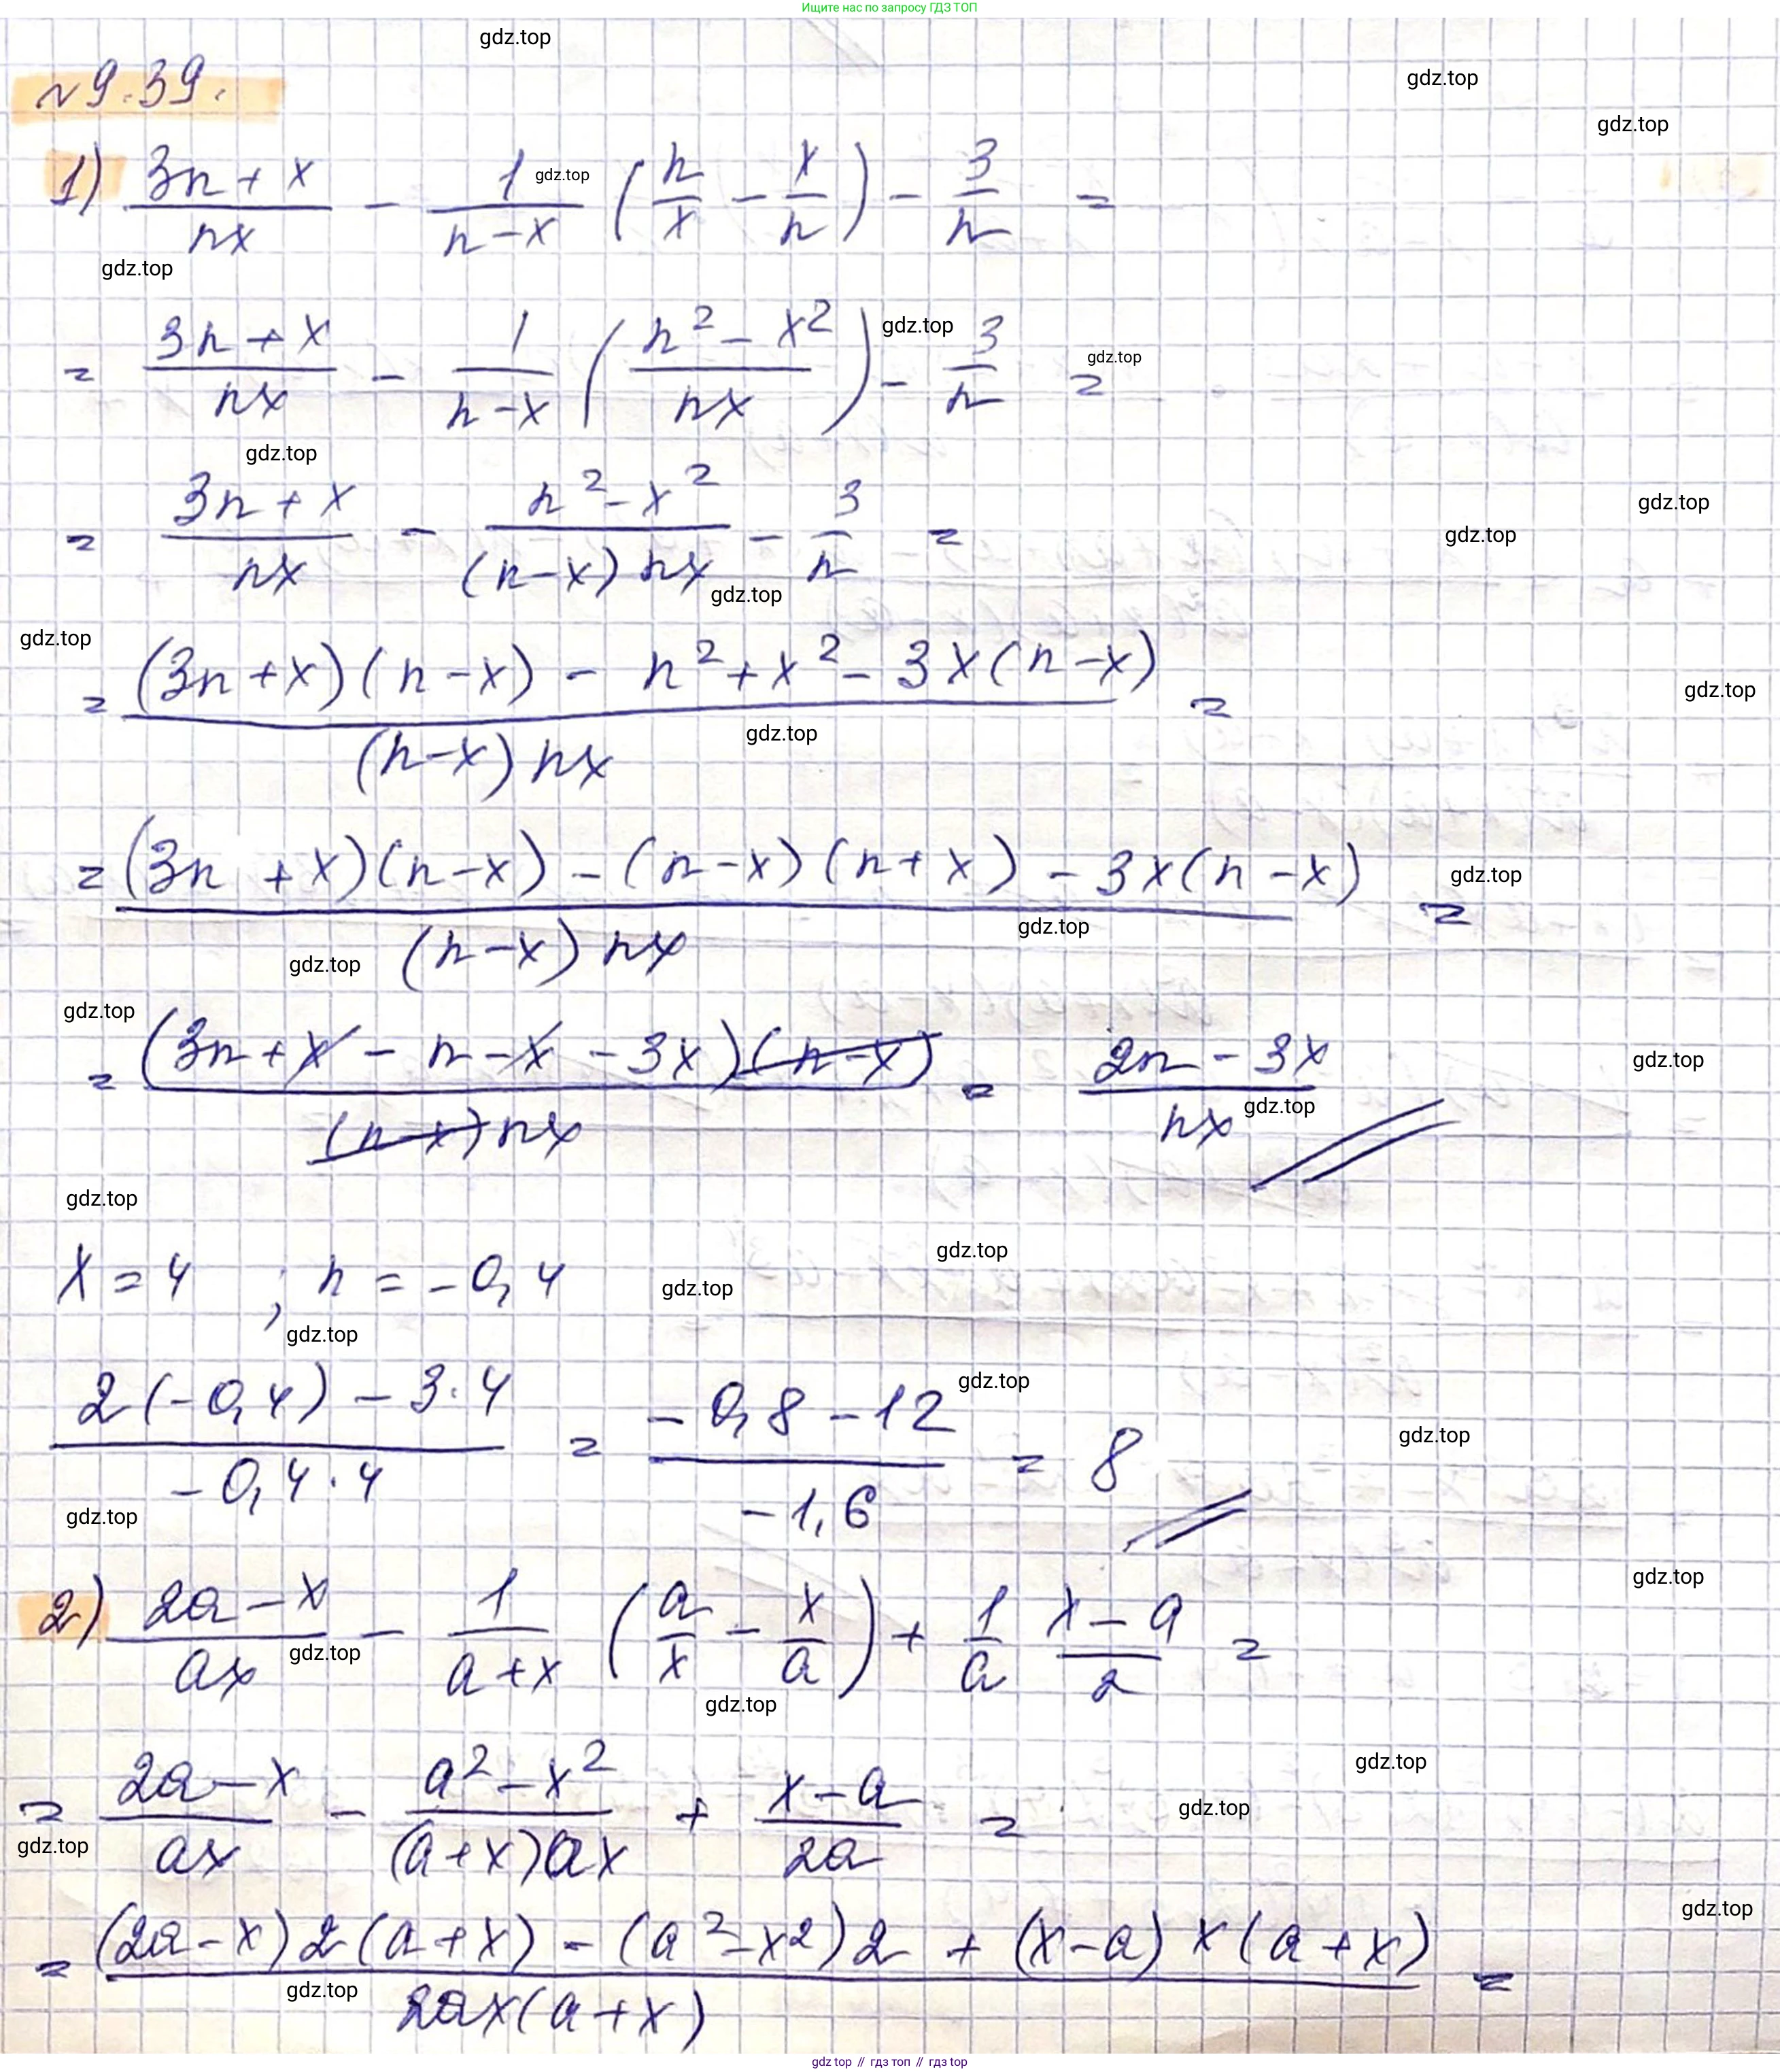 Ищите нас по запросу ГДЗ ТОП
gdz.top
№9.39.
gdz.top
gdz.top
1) (3n + x)/(nx) - 1/(n - x) (n/x - x/n) - 3/n =
gdz.top
gdz.top
= (3n + x)/(nx) - 1/(n - x) ((n² - x²)/(nx)) - 3/n =
gdz.top
gdz.top
gdz.top
= (3n + x)/(nx) - (n² - x²)/((n - x) nx) - 3/n =
gdz.top
gdz.top
gdz.top
gdz.top
= ((3n + x)(n - x) - n² + x² - 3x(n - x))/((n - x) nx) =
gdz.top
gdz.top
= ((3n + x)(n - x) - (n - x)(n + x) - 3x(n - x))/((n - x) nx) =
gdz.top
gdz.top
gdz.top
gdz.top
= ((3n + x - n - x - 3x)(n - x))/((n - x) nx) = (2n - 3x)/(nx)
gdz.top
gdz.top
gdz.top
x = 4 ; n = -0,4
gdz.top
gdz.top
gdz.top
(2(-0,4) - 3·4)/(-0,4·4) = (-0,8 - 12)/(-1,6) = 8
gdz.top
gdz.top
gdz.top
2) (2a - x)/(ax) - 1/(a + x) (a/x - x/a) + 1/a (x - a)/2 =
gdz.top
gdz.top
gdz.top
= (2a - x)/(ax) - (a² - x²)/((a + x)ax) + (x - a)/(2a) =
gdz.top
gdz.top
gdz.top
= ((2a - x)2(a + x) - (a² - x²)2 + (x - a) x (a + x))/(2ax(a + x)) =
gdz.top
gdz.top
gdz top // гдз топ // gdz top